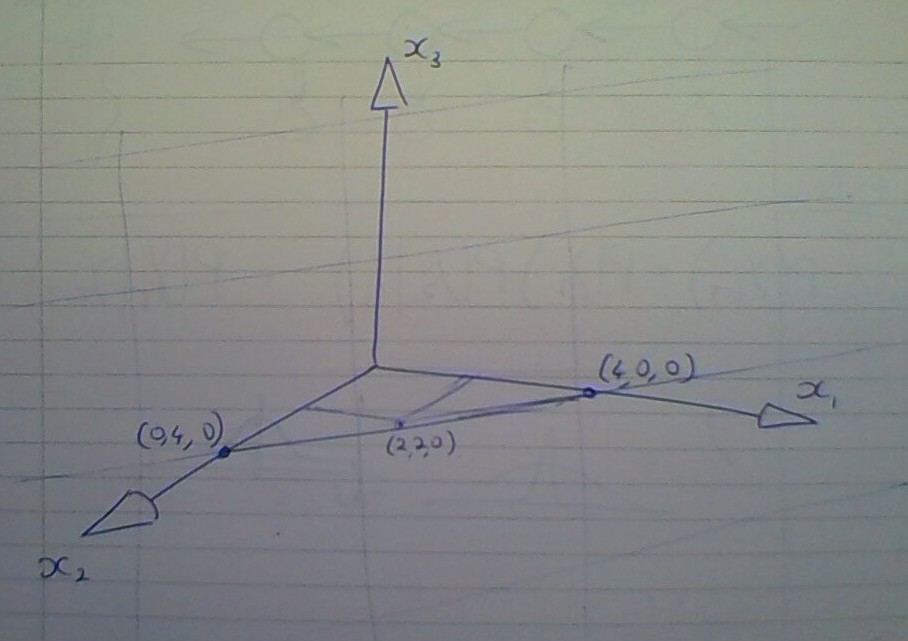 x₃
(4,0,0)
x₁
(0,4,0)
(2,2,0)
x₂